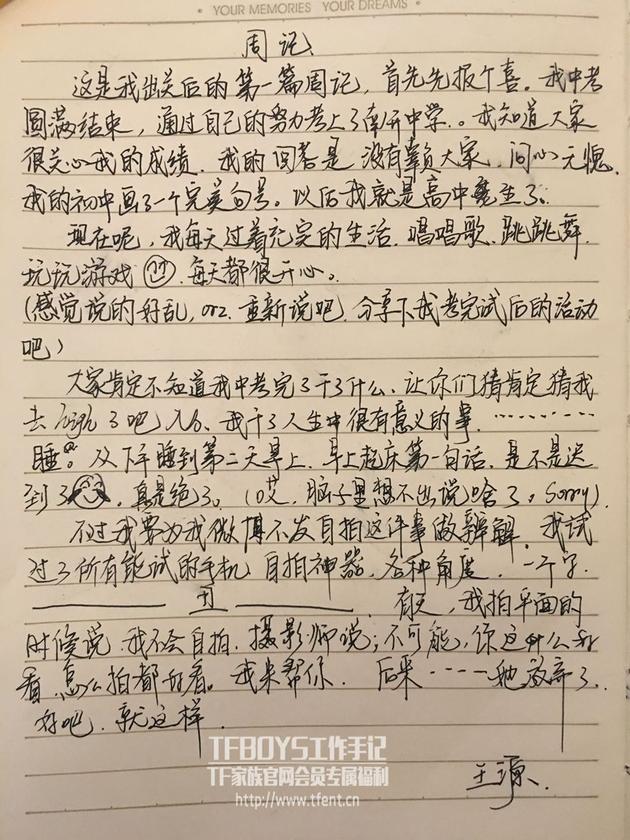 YOUR MEMORIES YOUR DREAMS
周记
这是我出关后的第一篇周记，首先先报个喜。我中考
圆满结束，通过自己的努力考上了南开中学。。我知道大家
很关心我的成绩，我的回答是 没有辜负大家，问心无愧
我的初中画了一个完美句号。以后我就是高中魔生了。
现在呢，我每天过着充实的生活，唱唱歌、跳跳舞
玩玩游戏 每天都很开心。
(感觉说的好乱，orz. 重新说吧，分享下我考完试后的活动
吧)
大家肯定不知道我中考完了干了什么，让你们猜肯定猜我
去 high 了吧 No. 我干了人生中很有意义的事. …………
睡。从下午睡到第二天早上，早上起床第一句话，是不是迟
到了，真是绝了。(哎，脑子里想不出说啥了。Sorry)
不过我要为我微博不发自拍这件事做辩解，我试
过了所有能试的手机，自拍神器，各种角度. 一个字.
—— 丑 —— 有天，我拍平面的
时候说 我不会自拍，摄影师说；不可能，你这什么好
看，怎么拍都好看。我来帮你. 后来……她放弃了.
好吧，就这样.
王源.
TFBOYS工作手记
TF家族官网会员专属福利
http://www.tfent.cn